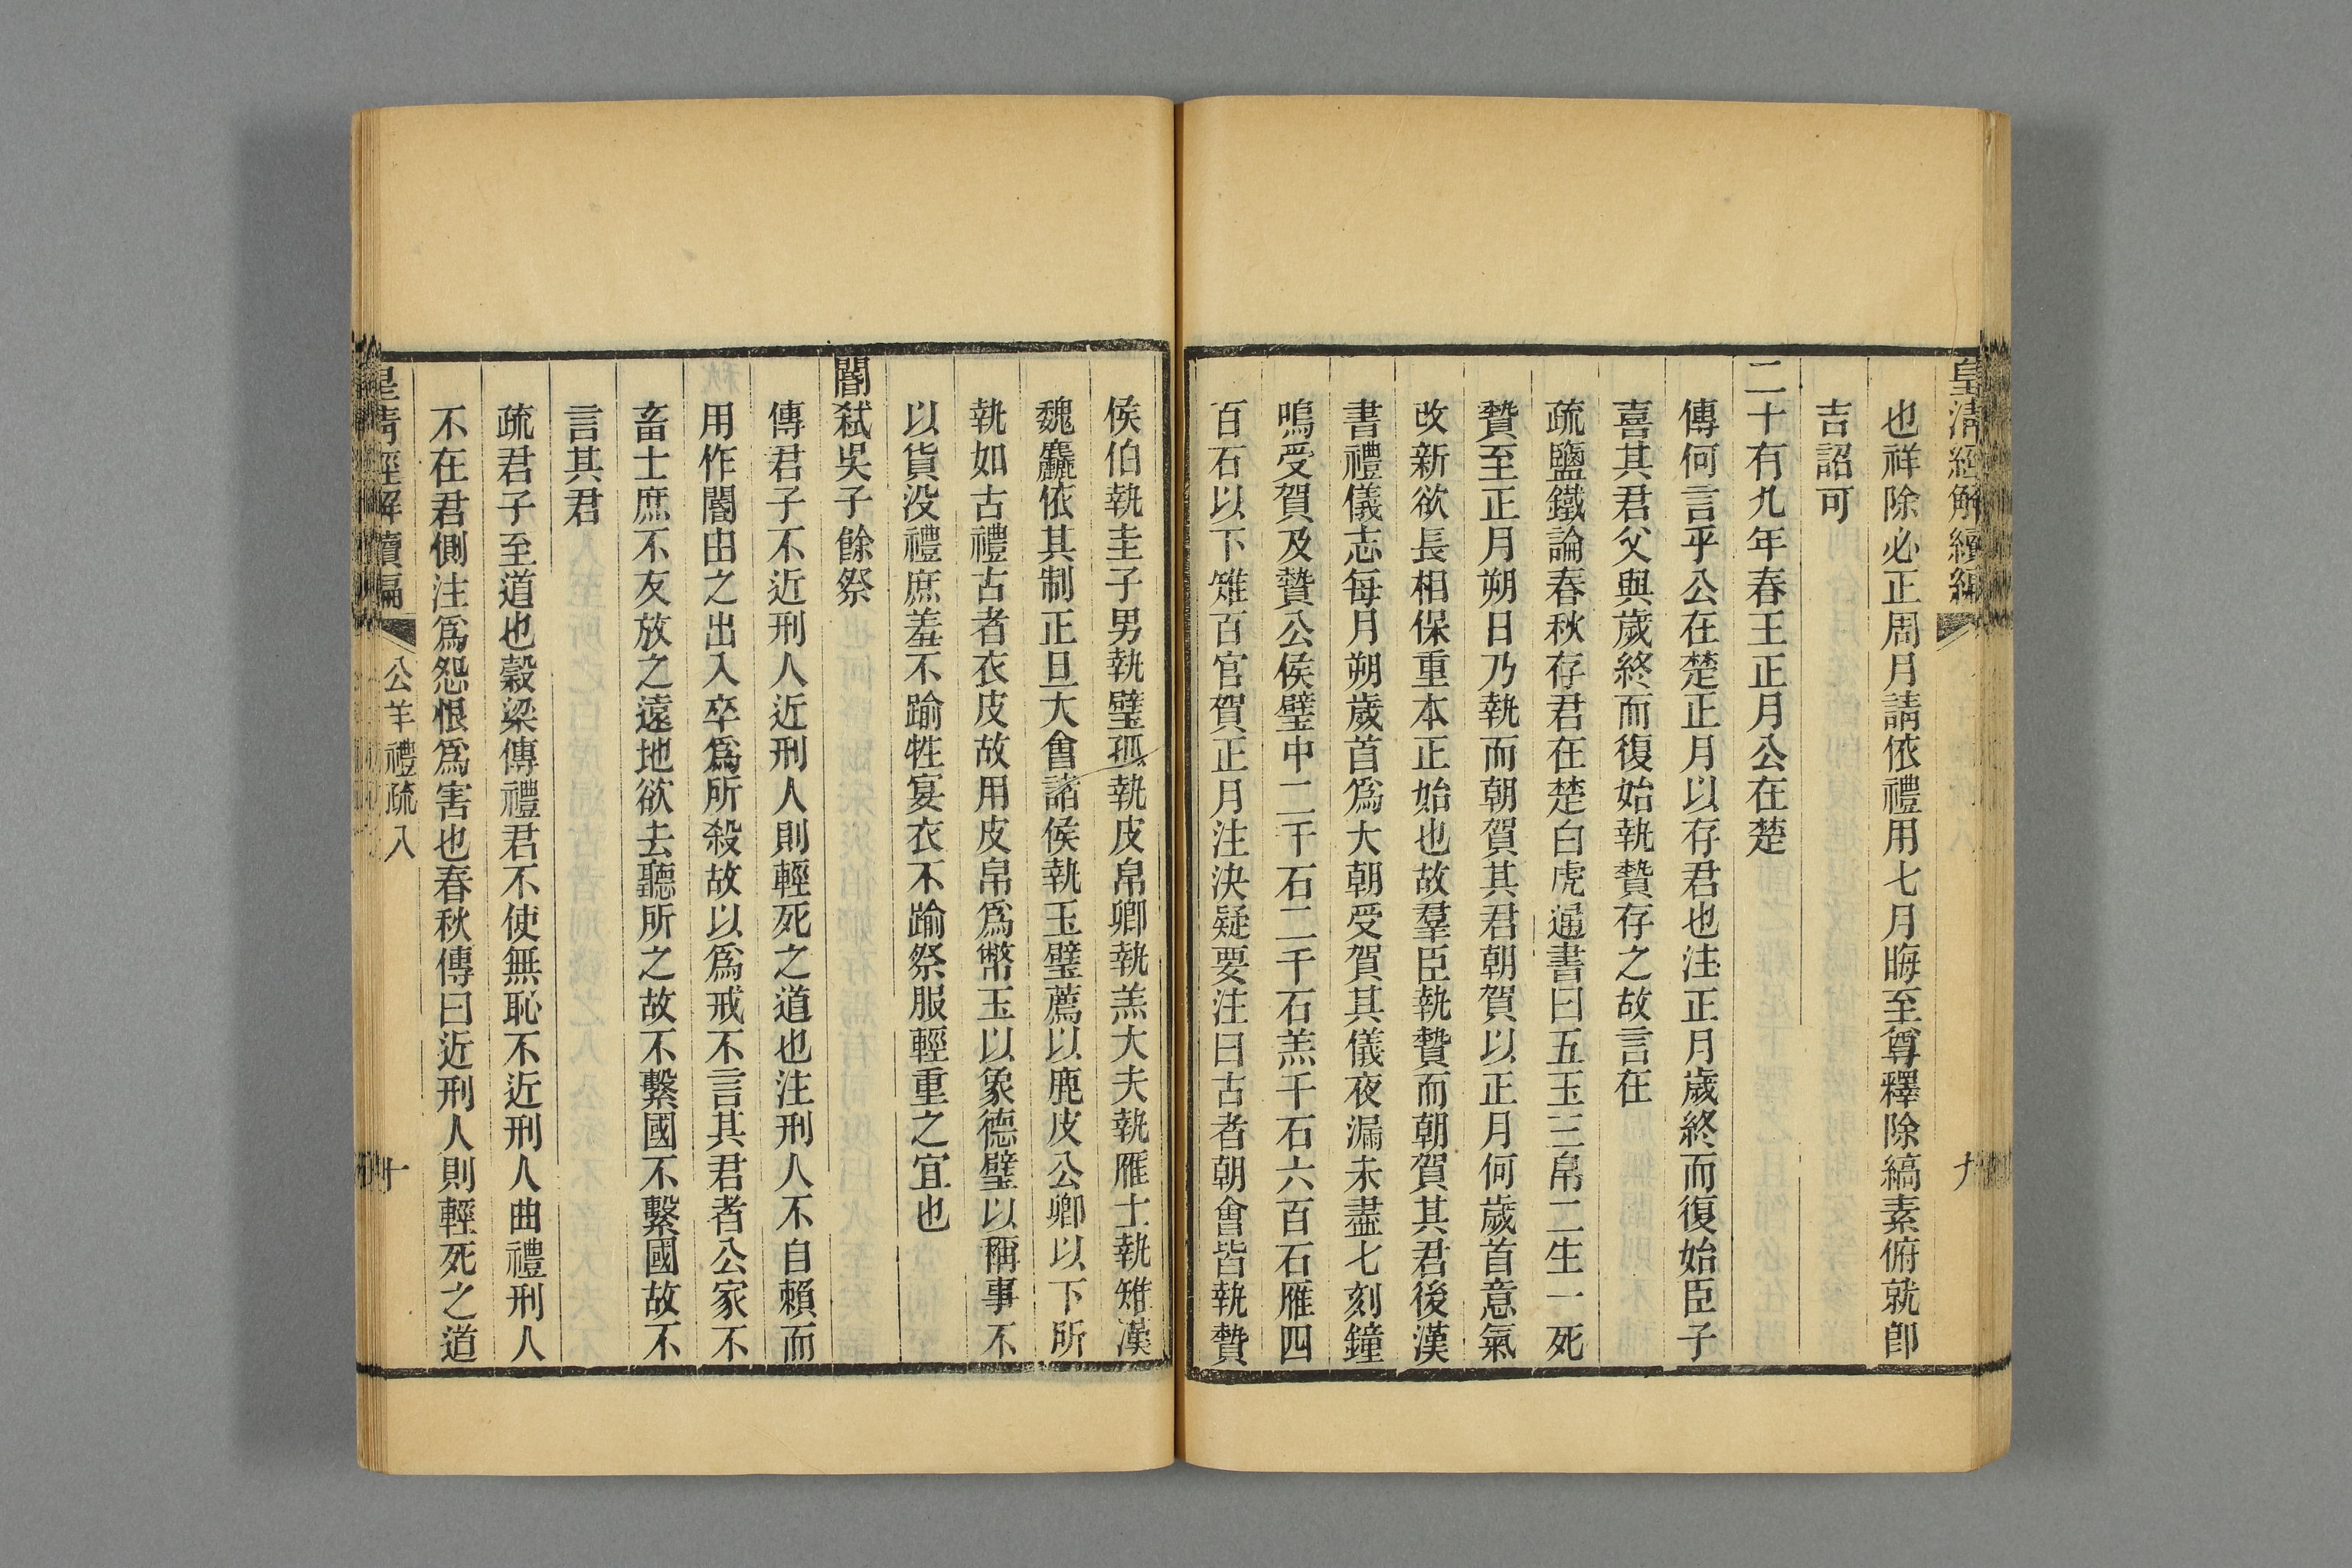 皇清經解續編
九
也祥除必正周月請依禮用七月晦至尊釋除縞素俯就卽
吉詔可
二十有九年春王正月公在楚
傳何言乎公在楚正月以存君也注正月歲終而復始臣子
喜其君父與歲終而復始執贄存之故言在
疏鹽鐵論春秋存君在楚白虎通書曰五玉三帛二生一死
贄至正月朔日乃執而朝賀其君朝賀以正月何歲首意氣
改新欲長相保重本正始也故羣臣執贄而朝賀其君後漢
書禮儀志每月朔歲首爲大朝受賀其儀夜漏未盡七刻鐘
鳴受賀及贄公侯璧中二千石二千石羔千石六百石雁四
百石以下雉百官賀正月注決疑要注曰古者朝會皆執贄
侯伯執圭子男執璧孤執皮帛卿執羔大夫執雁士執雉漢
魏麤依其制正旦大會諸侯執玉璧薦以鹿皮公卿以下所
執如古禮古者衣皮故用皮帛爲幣玉以象德璧以稱事不
以貨没禮庶羞不踰牲宴衣不踰祭服輕重之宜也
閽弑吳子餘祭
傳君子不近刑人近刑人則輕死之道也注刑人不自賴而
用作閽由之出入卒爲所殺故以爲戒不言其君者公家不
畜士庶不友放之遠地欲去聽所之故不繫國不繫國故不
言其君
疏君子至道也穀梁傳禮君不使無恥不近刑人曲禮刑人
不在君側注爲怨恨爲害也春秋傳曰近刑人則輕死之道
皇清經解續編
公羊禮疏八
十